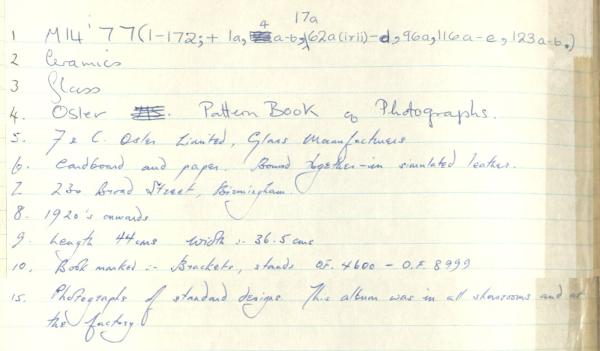 17a
1 M14'77(1-172; + 1a, 4 a-b, 62a(i+ii)-d, 96a, 116a-e, 123a-b.)
2 Ceramics
3 Glass
4. Oster Pattern Book of Photographs.
5. F & C. Osler Limited, Glass Manufacturers
6. Cardboard and paper. Bound together in simulated leather.
7. 230 Broad Street, Birmingham.
8. 1920's onwards
9. Length 44cms Width :- 36.5cms
10. Book marked :- Brackets, stands OF. 4600 - O.F. 8999
15. Photographs of standard designs. This album was in all showrooms and at
the factory